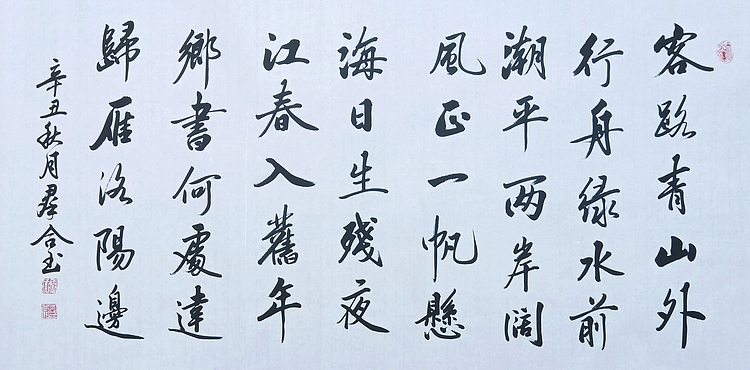 客路青山外
行舟绿水前
潮平两岸阔
風正一帆懸
海日生殘夜
江春入舊年
鄉書何處達
歸雁洛陽邊
辛丑秋月羣合